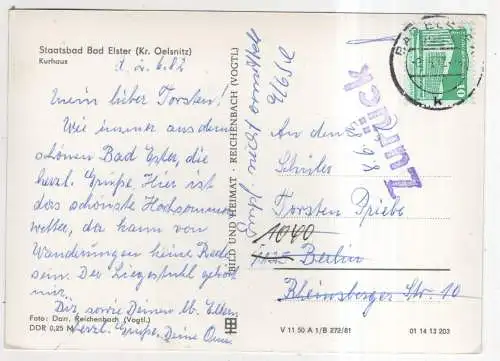 Staatsbad Bad Elster (Kr. Oelsnitz)
Kurhaus
d. 2. 6. 82
Mein lieber Torsten!
Wie immer aus dem
schönen Bad Elster, die
herzl. Grüße. Hier ist
das schönste Hochsommer
wetter, da kann von
Wanderungen keine Rede
sein. Der Liegestuhl gehört
mir.
Dir, sowie Deinen lb. Eltern
herzl. Grüße. Deine Oma
Foto: Darr, Reichenbach (Vogtl.)
DDR 0,25 M
BILD UND HEIMAT · REICHENBACH (VOGTL)
Empf. nicht ermittelt
Zurück
8.6.82
BAD ELSTER
k
10
An den
Schüler
Torsten Priebe
1040
Berlin
Rheinsberger Str. 10
V 11 50 A 1/B 272/81
01 14 13 203